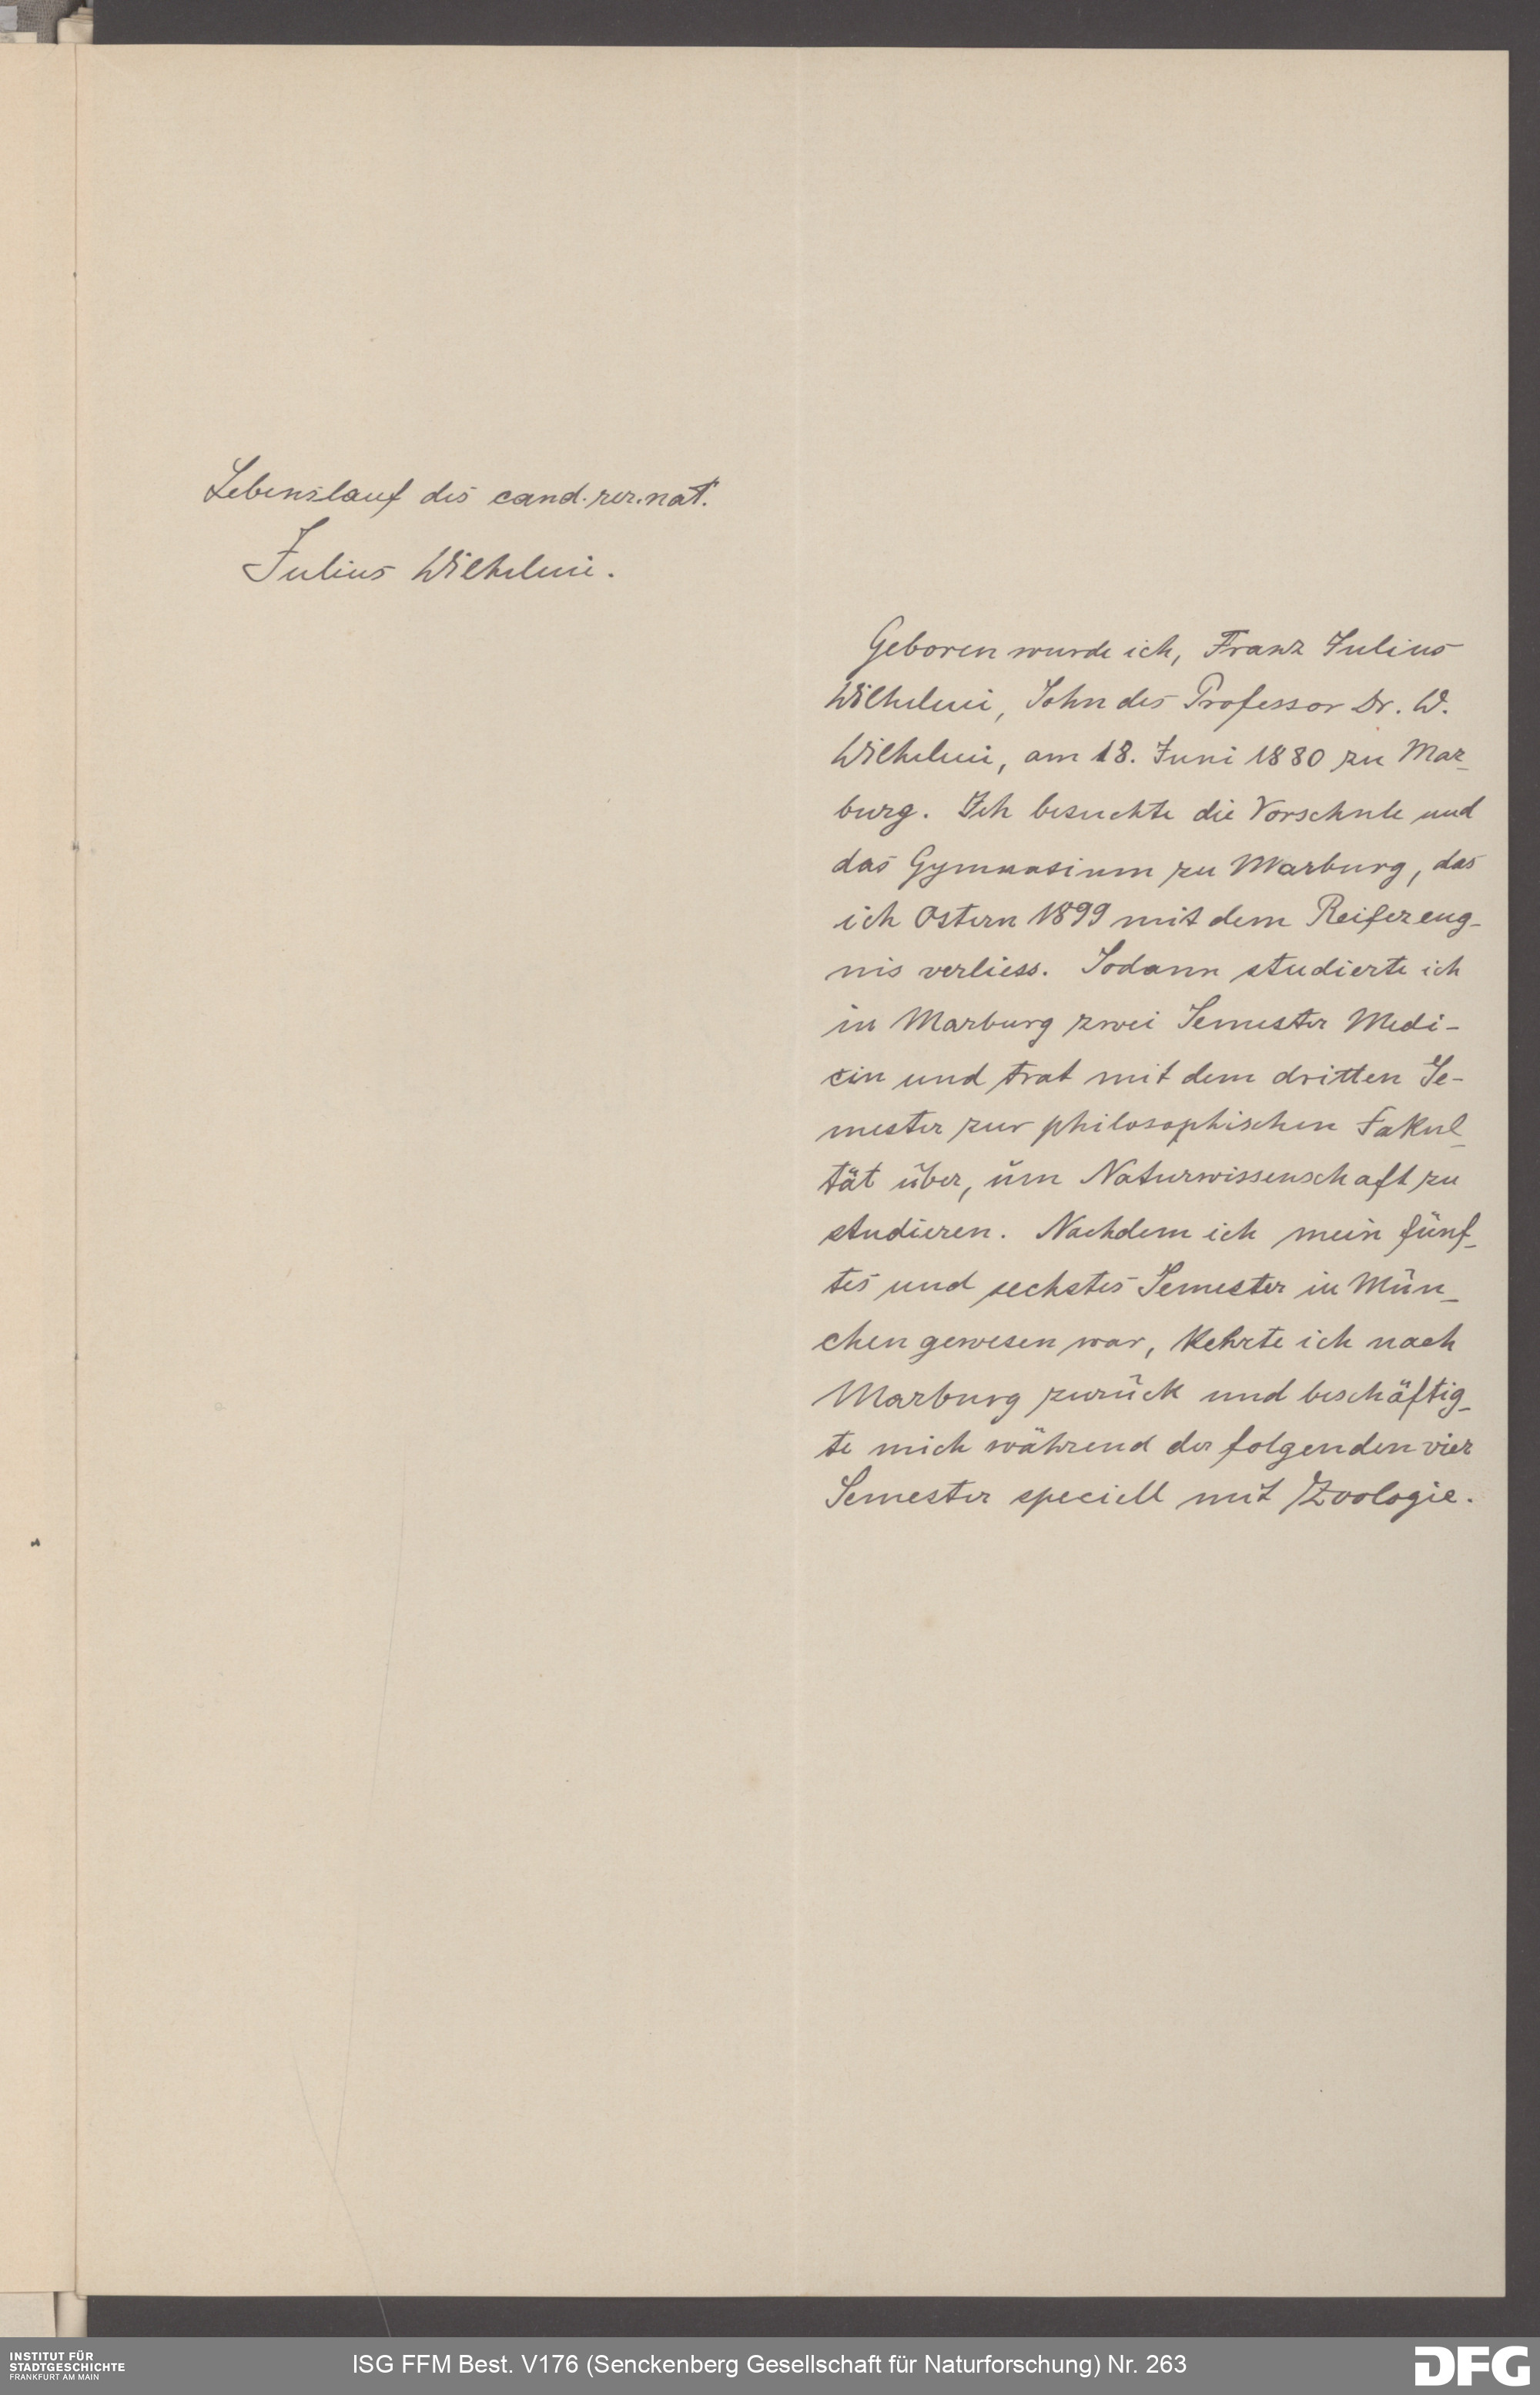 Lebenslauf des cand. rer. nat.
Julius Wilhelmi.
Geboren wurde ich, Franz Julius
Wilhelmi, Sohn des Professor Dr. W.
Wilhelmi, am 18. Juni 1880 zu Mar-
burg. Ich besuchte die Vorschule und
das Gymnasium zu Marburg, das
ich Ostern 1899 mit dem Reifezeug-
nis verliess. Sodann studierte ich
in Marburg zwei Semester Medi-
cin und trat mit dem dritten Se-
mester zur philosophischen Fakul-
tät über, um Naturwissenschaft zu
studieren. Nachdem ich mein fünf-
tes und sechstes Semester in Mün-
chen gewesen war, kehrte ich nach
Marburg zurück und beschäftig-
te mich während der folgenden vier
Semester speciell mit Zoologie.
INSTITUT FÜR
STADTGESCHICHTE
FRANKFURT AM MAIN
ISG FFM Best. V176 (Senckenberg Gesellschaft für Naturforschung) Nr. 263
DFG